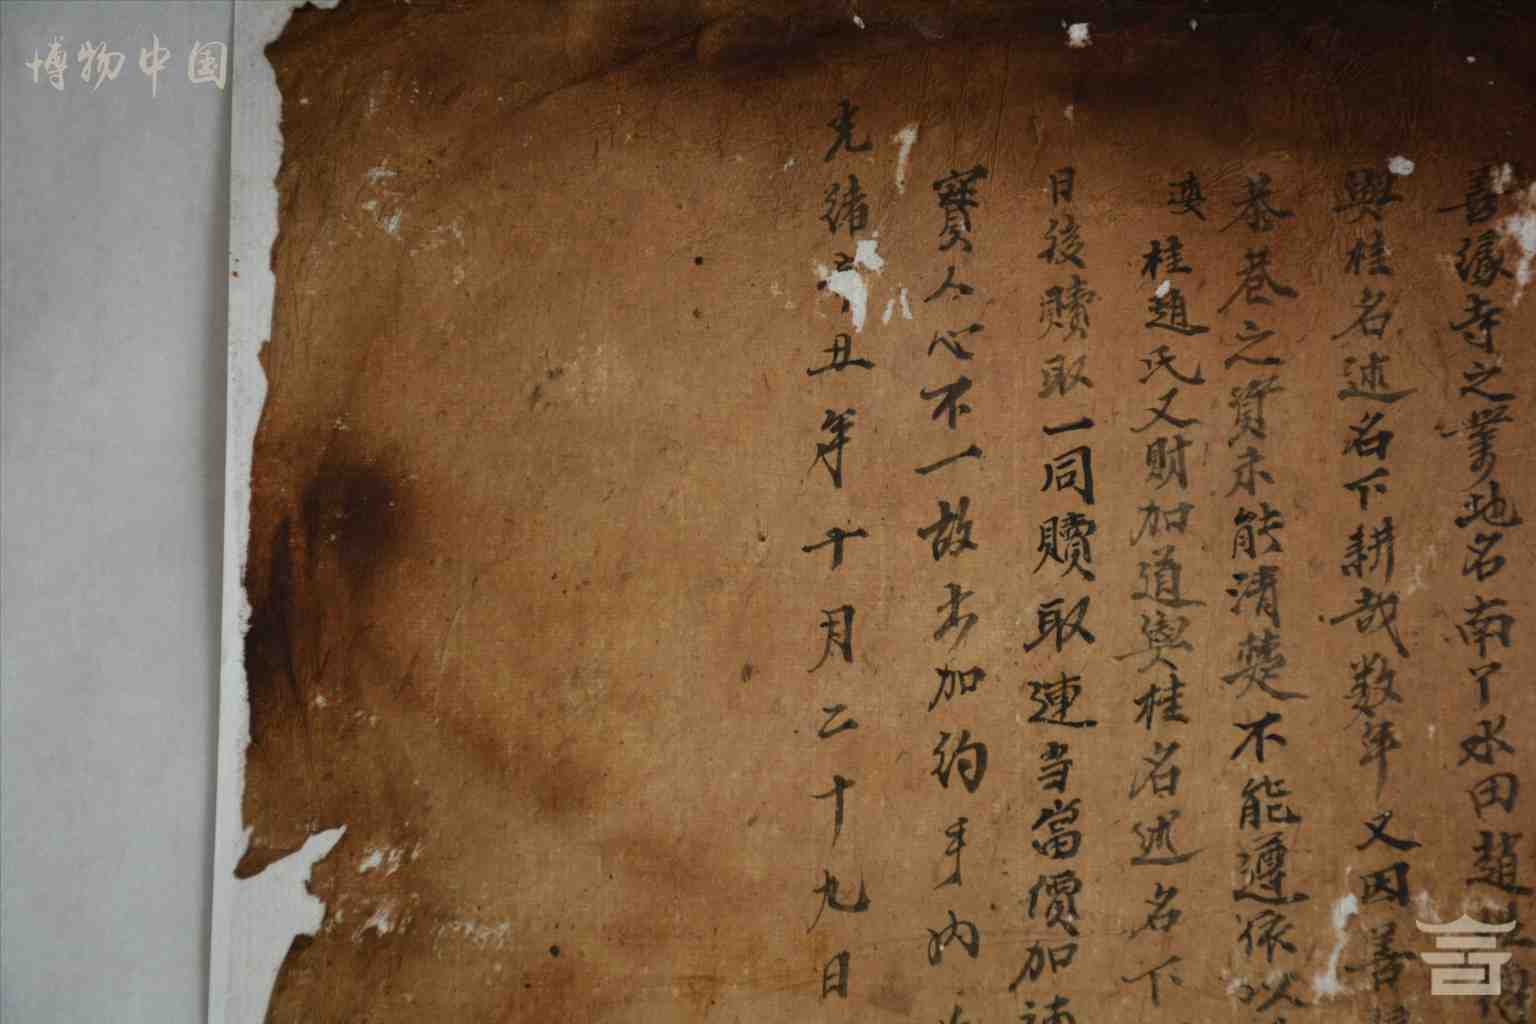 博物中国
善缘寺之業地名南丫水田趙
與桂名述名下耕哉数年又因善
恭巷之資未能清楚不能遵依以
桂趙氏又財加道與桂名述名下
日後贖取一同贖取連当當價加
寳人心不一故出加約手内
光緒丑年十月二十九日